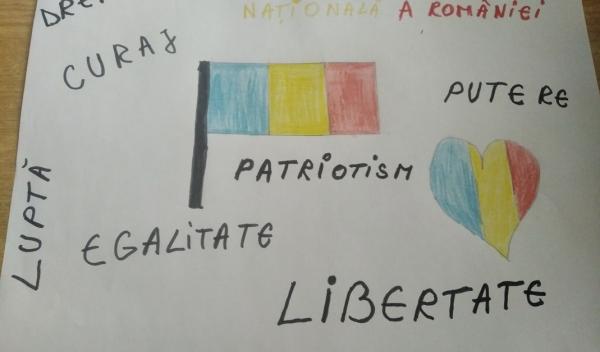 NAȚIONALĂ A ROMÂNIEI
CURAJ
PUTERE
PATRIOTISM
LUPTĂ
EGALITATE
LIBERTATE